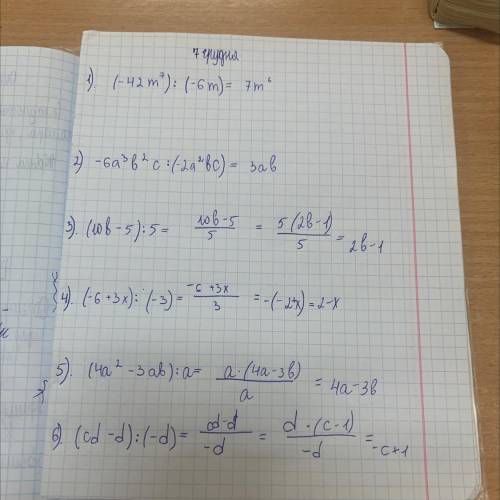 7 грудня
1). (-42m⁷) : (-6m) = 7m⁶
2) -6a³b²c : (-2a²bc) = 3ab
3). (10b-5) : 5 = \frac{10b-5}{5} = \frac{5(2b-1)}{5} = 2b-1
4). (-6+3x) : (-3) = \frac{-6+3x}{3} = -(-2+x) = 2-x
5). (4a²-3ab) : a = \frac{a·(4a-3b)}{a} = 4a-3b
6). (cd-d) : (-d) = \frac{cd-d}{-d} = \frac{d·(c-1)}{-d} = -c+1